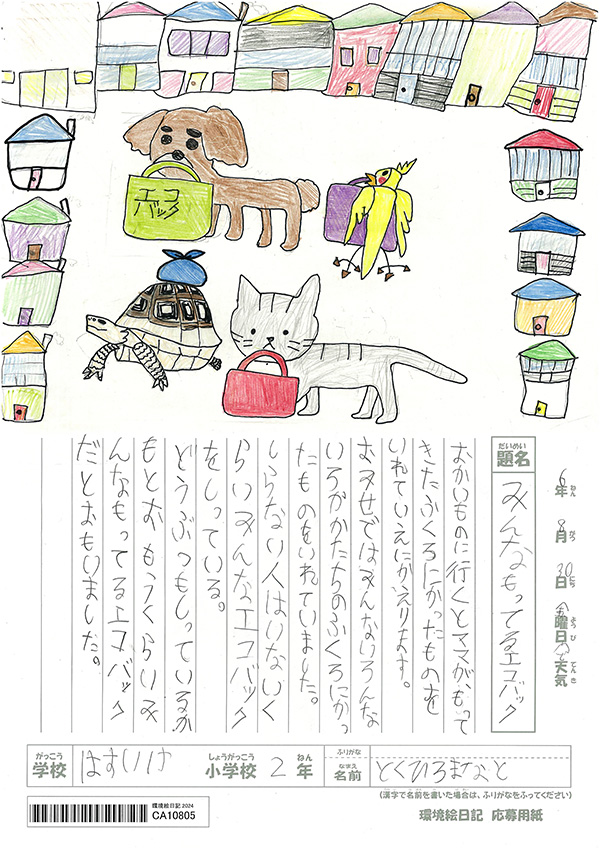 エコ
バック
6年 8月 30日 金曜日 天気
ねん がつ にち ようび てんき
だいめい
題名
みんなもってるエコバック
おかいものに行くとママが、もって
きたふくろにかったものを
いれていえにかえります。
おみせではみんないろんな
いろやかたちのふくろにかっ
たものをいれていました。
しらない人はいないく
らいみんなエコバック
をしっている。
どうぶつもしっているか
もとおもうくらいみ
んなもってるエコバック
だとおもいました。
がっこう しょうがっこう ねん ふりがな
学校 はすいけ 小学校 2年
なまえ
名前 とくひろまなと
(漢字で名前を書いた場合は、ふりがなをふってください)
環境絵日記 2024
CA10805
環境絵日記 応募用紙